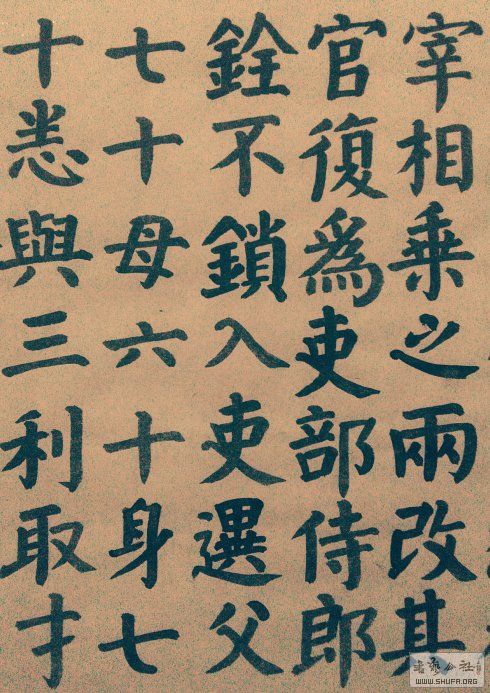 宰相乗之兩改其
官復爲吏部侍郎
銓不鎖入吏選父
七十母六十身七
十悉與三利取才
書藝公社
WWW.SHUFA.ORG